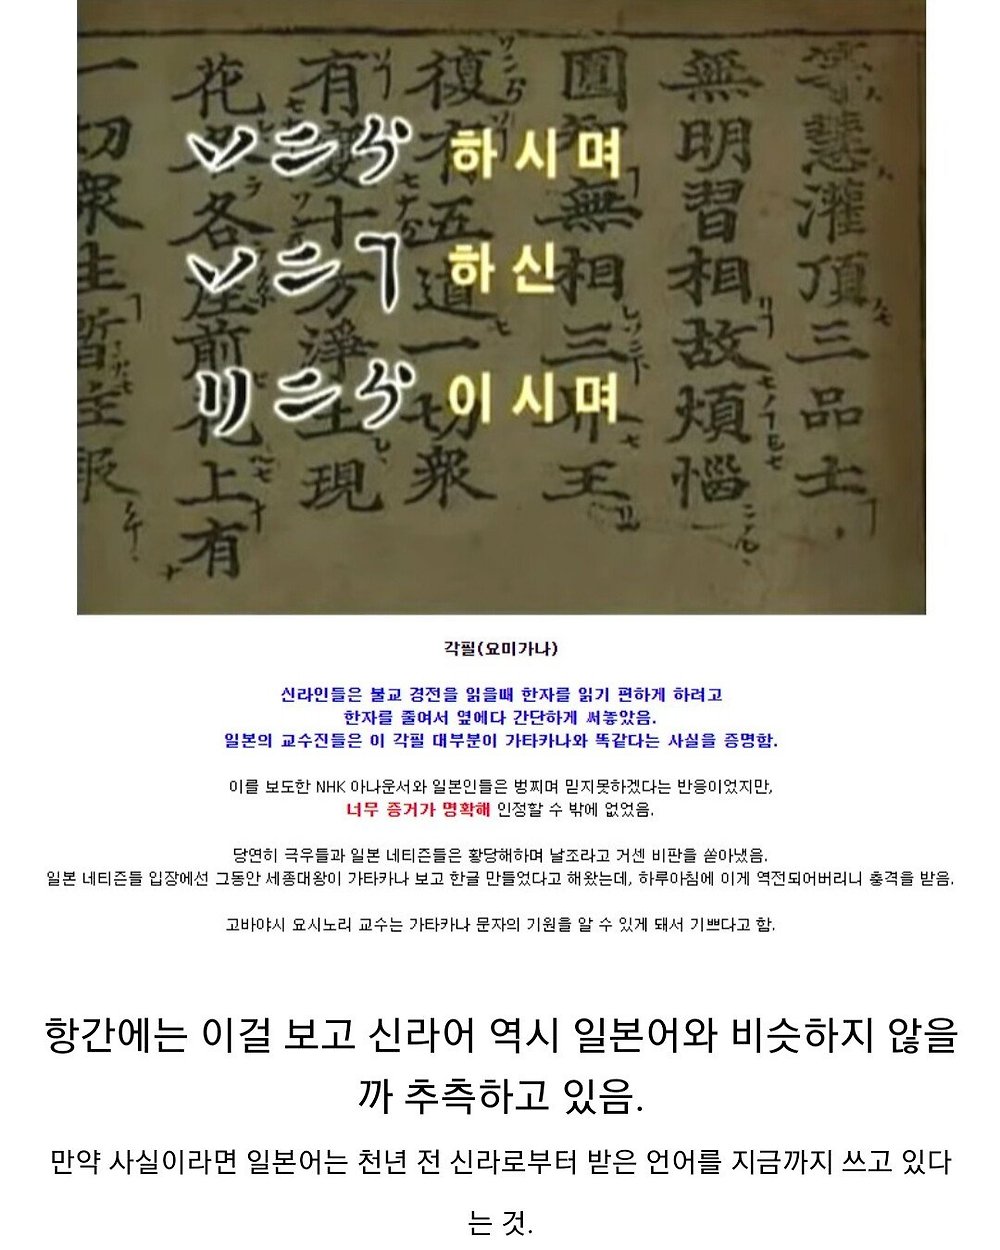 하시며
하신
이시며
慧灌頂三品士
無明習相故煩惱
圓無相三王
復有五道一切衆
有十方淨土現
花各座前花上有
一切衆生暫住報
각필(요미가나)
신라인들은 불교 경전을 읽을때 한자를 읽기 편하게 하려고
한자를 줄여서 옆에다 간단하게 써놓았음.
일본의 교수진들은 이 각필 대부분이 가타카나와 똑같다는 사실을 증명함.
이를 보도한 NHK 아나운서와 일본인들은 벙찌며 믿지못하겠다는 반응이었지만,
너무 증거가 명확해 인정할 수 밖에 없었음.
당연히 극우들과 일본 네티즌들은 황당해하며 날조라고 거센 비판을 쏟아냈음.
일본 네티즌들 입장에선 그동안 세종대왕이 가타카나 보고 한글 만들었다고 해왔는데, 하루아침에 이게 역전되어버리니 충격을 받음.
고바야시 요시노리 교수는 가타카나 문자의 기원을 알 수 있게 돼서 기쁘다고 함.
항간에는 이걸 보고 신라어 역시 일본어와 비슷하지 않을
까 추측하고 있음.
만약 사실이라면 일본어는 천년 전 신라로부터 받은 언어를 지금까지 쓰고 있다
는 것.